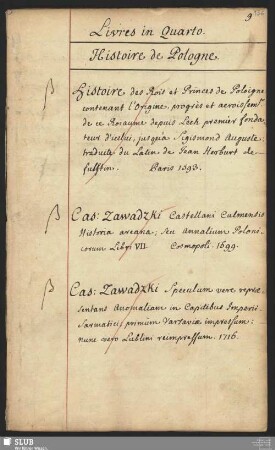 9
Livres in Quarto.
Histoire de Pologne.
β Histoire des Rois et Princes de Poloigne
contenant l'Origine, progrès et accroissemt
de ce Roiaume depuis Lech premier fonda-
teur d'icelui, jusqu'a Sigismond Auguste:
traduite du Latin de Jean Herburt de
fulstin. Paris 1593.
β Cas: Zawadzki Castellani Culmensis
Historia arcana, seu Annalium Poloni-
corum Libri VII. Cosmopoli. 1699.
β Cas: Zawadzki Speculum vere repræ-
sentant Anomaliam in Capitibus Imperii
Sarmatici primum Varsaviæ impressum:
nunc vero Lublini reimpressum. 1716.
SLUB